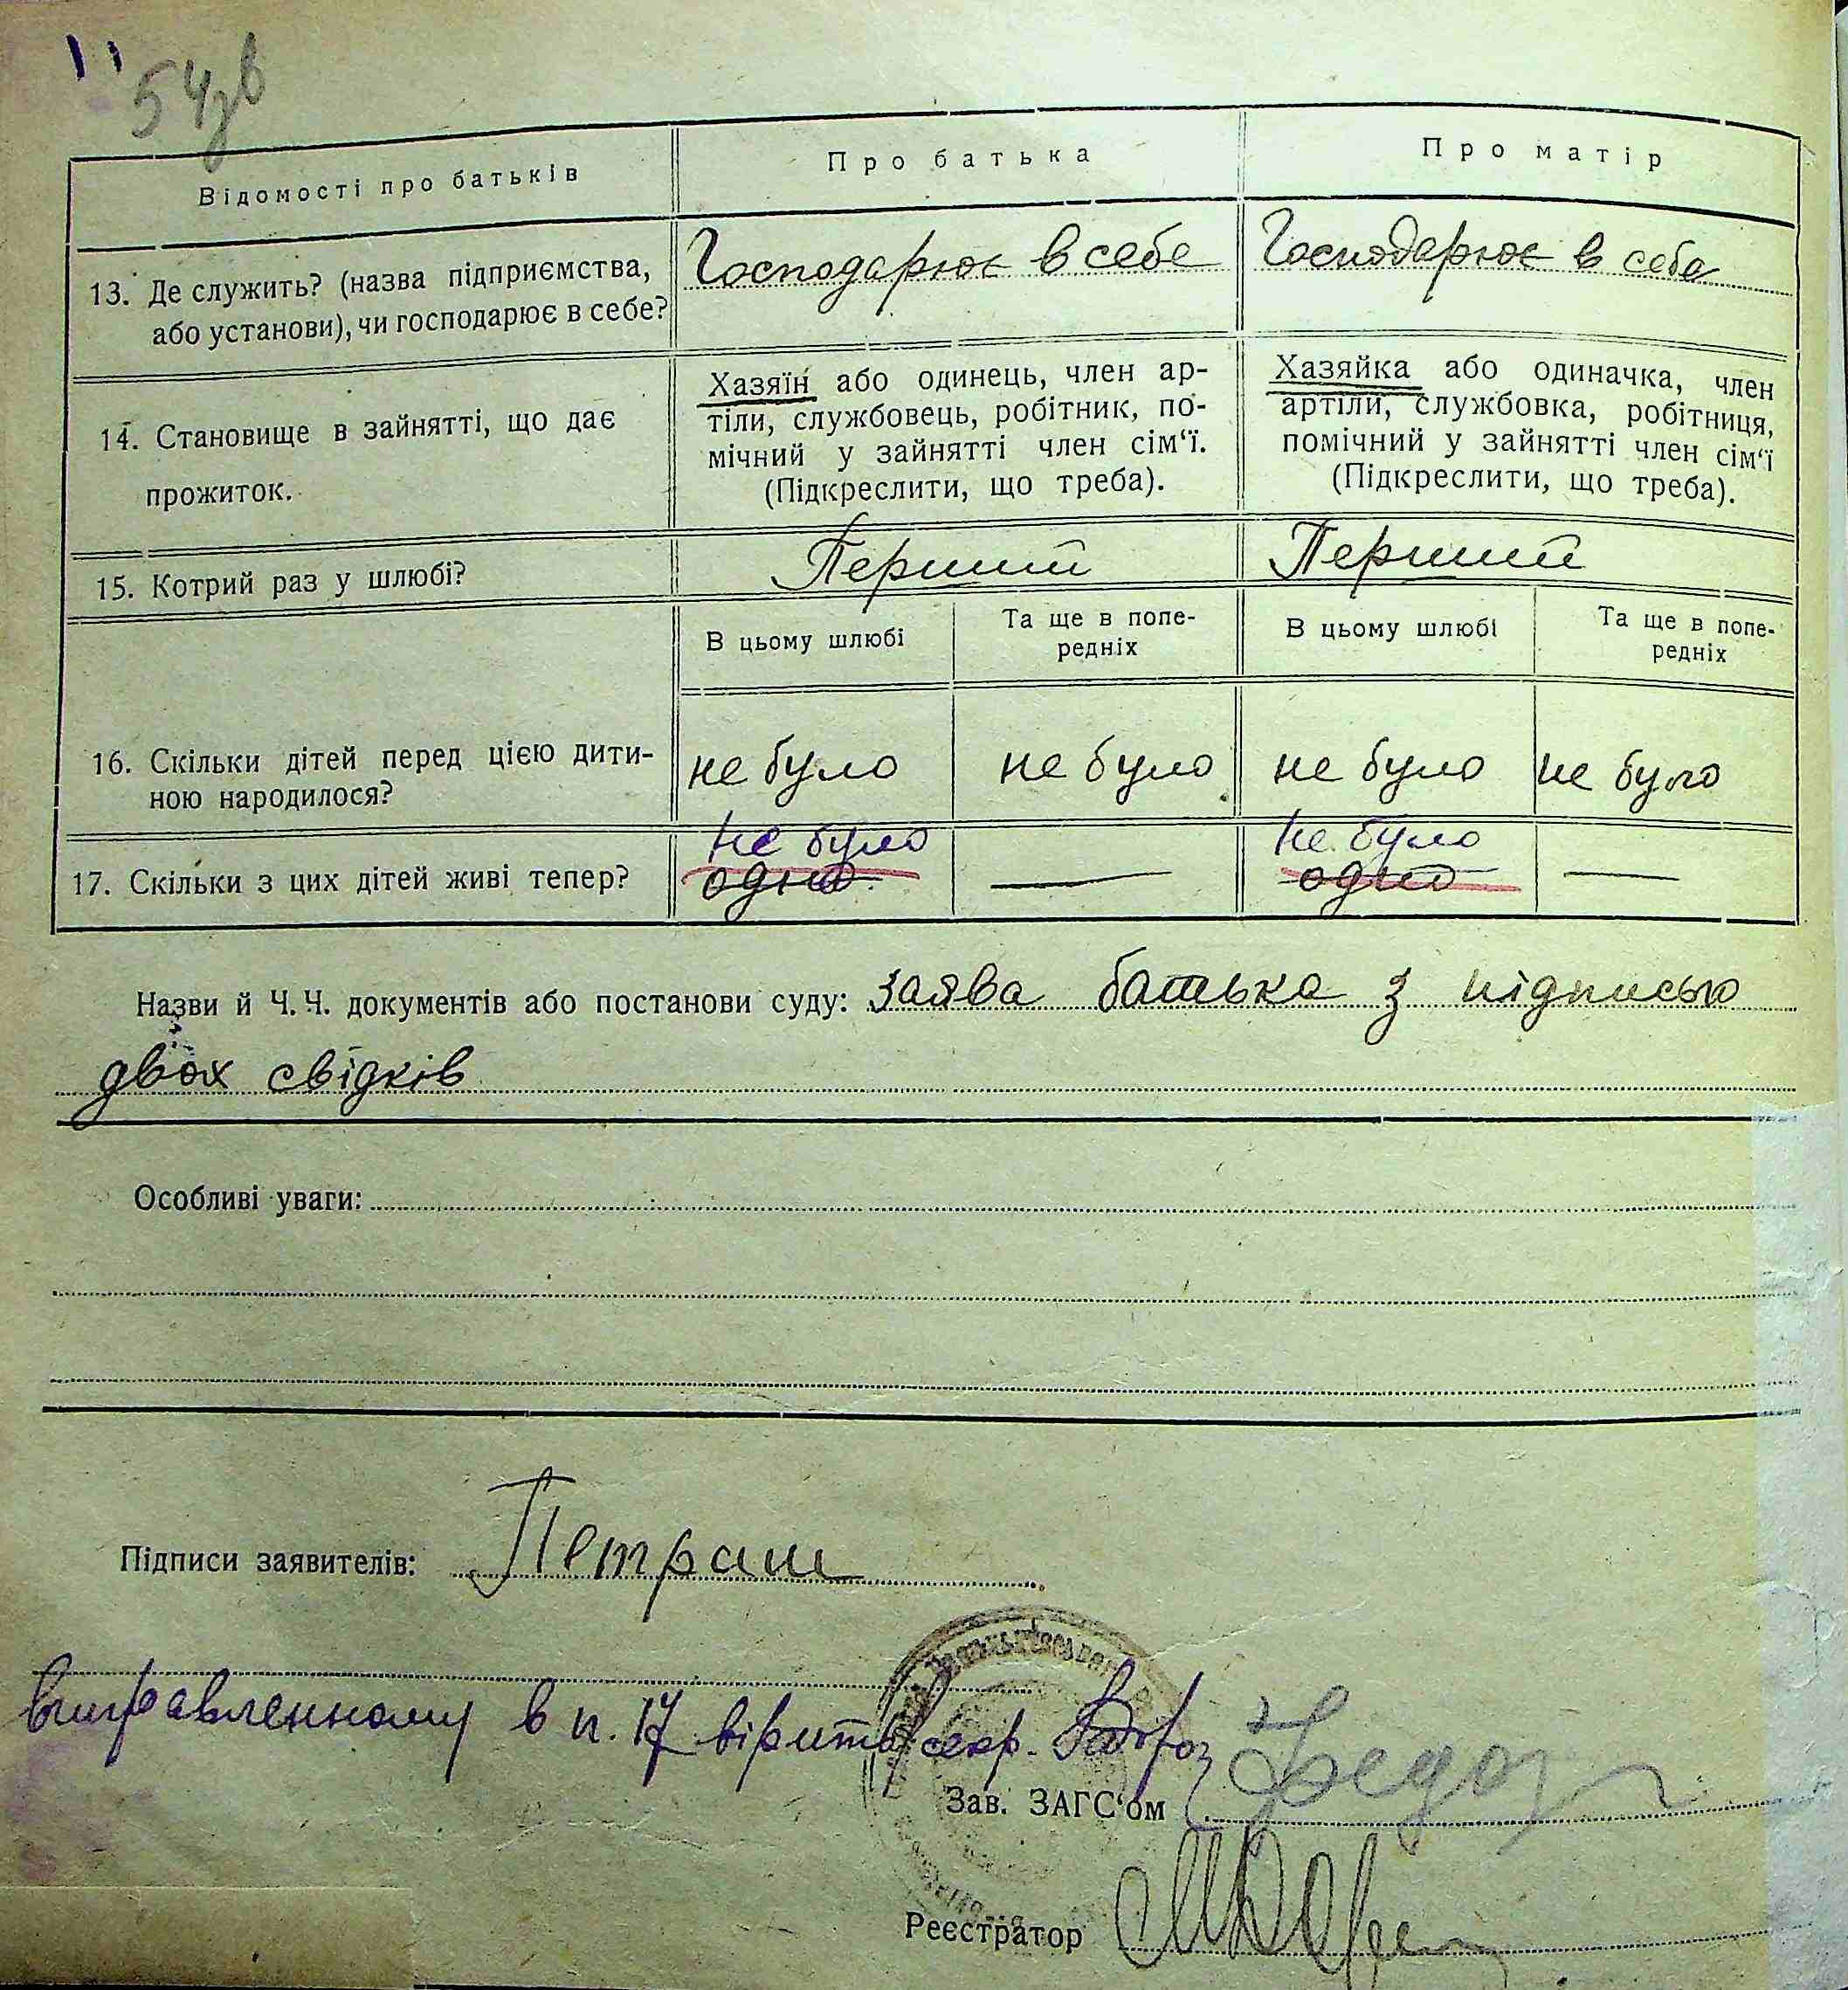 54зв
Відомості про батьків
Про батька
Про матір
13. Де служить? (назва підприємства,
або установи), чи господарює в себе?
Господарює в себе
Господарює в себе
14. Становище в зайнятті, що дає
прожиток.
Хазяїн або одинець, член ар-
тіли, службовець, робітник, по-
мічний у зайнятті член сім‘ї.
(Підкреслити, що треба).
Хазяйка або одиначка, член
артіли, службовка, робітниця,
помічний у зайнятті член сім‘ї
(Підкреслити, що треба).
15. Котрий раз у шлюбі?
Перший
Перший
В цьому шлюбі
Та ще в попе-
редніх
В цьому шлюбі
Та ще в попе-
редніх
16. Скільки дітей перед цією дити-
ною народилося?
не було
не було
не було
не було
17. Скільки з цих дітей живі тепер?
не було
одно
—
не було
одно
—
Назви й Ч. Ч. документів або постанови суду: заява батька з підписью
двох свідків
Особливі уваги:
Підписи заявителів: Петраш
виправленному в п. 17 вірить секр.
Зав. ЗАГС‘ом
Реєстратор